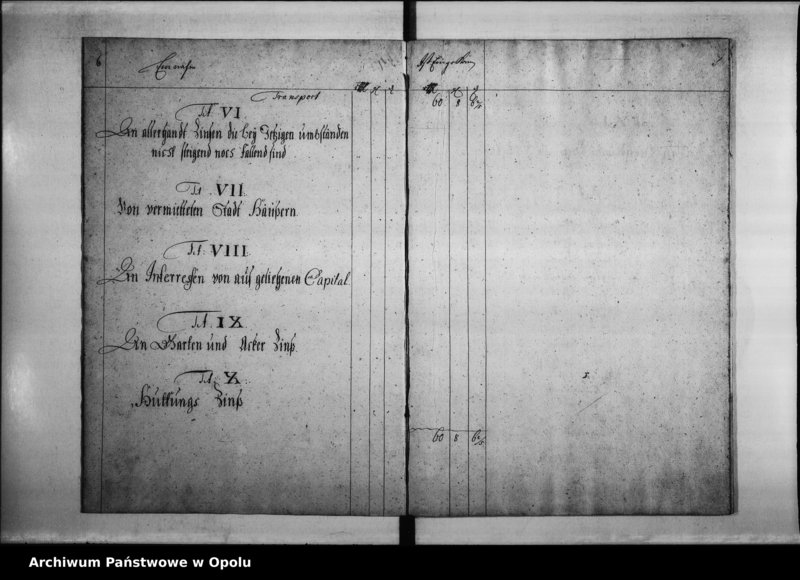 6
Einnahm
Ist Eingekom
7
Transport
60 8 6 2/5
Tit VI
An allerhandt Zinsen die bey Jetzigen umbständen
nicht steigend noch fallend sind
Tit. VII.
Von vermietteten Stadt Häußern.
Tit: VIII.
An Interressen von auß geliehenen Capital.
Tit. IX.
An Garten und Acker Zinß.
Tit. X.
Huttungs Zinß
60 8 6 2/5
Archiwum Państwowe w Opolu